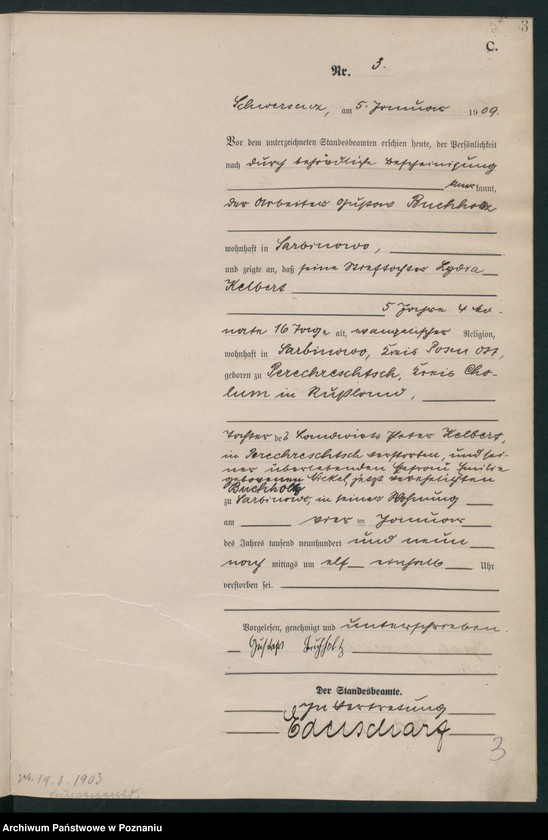 3
C.
Nr. 3.
Schwersenz, am 5. Januar 1909.
Vor dem unterzeichneten Standesbeamten erschien heute, der Persönlichkeit
nach durch behördliche Bescheinigung
aner kannt,
der Arbeiter Gustav Buchholz
wohnhaft in Sarbinowo,
und zeigte an, daß seine Stieftochter Lydia
Kelbert
5 Jahre 4 Mo-
nate 16 Tage alt, evangelischer Religion,
wohnhaft in Sarbinowo, Kreis Posen Ost,
geboren zu Perechreschtsch, Kreis Cho-
lum in Rußland,
Tochter des Landwirts Peter Kelbert,
in Perechreschtsch verstorben, und sei-
ner überlebenden Ehefrau Emilie
geborenen Nickel, jetzt verehelichten
Buchholz
zu Sarbinowo, in seiner Wohnung
am vier ten Januar
des Jahres tausend neunhundert und neun
nach mittags um elf einhalb Uhr
verstorben sei.
Vorgelesen, genehmigt und unterschrieben.
Gustaf Buchholz
Der Standesbeamte.
In Vertretung
3
19.8.1903
Archiwum Państwowe w Poznaniu